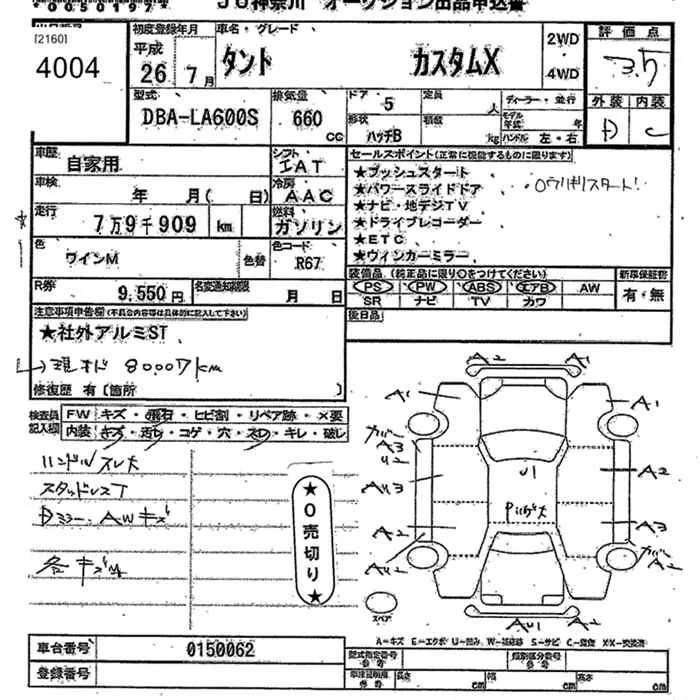 *0050197*
JU神奈川 オークション出品申込書
[2160]
4004
初度登録年月
平成
26年 7月
車名・グレード
タント カスタムX
2WD
4WD
評価点
3.5
外装 内装
D C
型式
DBA-LA600S
排気量
660
CC
ドア
5
形状
ハッチB
定員
人
積載
kg
ディーラー・並行
モデル年式
年
ハンドル 左・右
車歴
自家用
シフト
IAT
車検
年 月( 日)
冷房
AAC
走行
7万9千909 km
燃料
ガソリン
色
ワインM
色替
色コード
R67
R券
9,550円
名変通知期限
月 日
セールスポイント(正常に機能するものに限ります)
★プッシュスタート
★パワースライドドア
★ナビ・地デジTV
★ドライブレコーダー
★ETC
★ウィンカーミラー
0切りスタート!
装備品 (純正品に限り○をつけてください)
PS PW ABS エアB AW
SR ナビ TV カワ
新車保証書
有・無
後日品
注意事項申告欄(不具合内容等は具体的に記入して下さい)
★社外アルミST
→現オド 80007km
修復歴 有〔箇所 〕
検査員記入欄
FW キズ・飛石・ヒビ割・リペア跡・×要
内装 キズ・汚レ・コゲ・穴・スレ・キレ・破レ
ハンドルスレ大
スタッドレスT
Dミラー、AWキズ
各キズW
★0売切り★
A2 A1
A1 A1
ガバー
A3
U2
U1
A2
AU3
Pハゲ大
A2
A3
AU2
ガバー
A2
AU1
スペア
A=キズ E=エクボ U=凹み W=補修跡 S=サビ C=腐食 XX=交換済
車台番号 0150062
登録番号
型式指定番号
類別区分番号
参考
車津証明用 参考
長さ cm
幅 cm
高さ cm